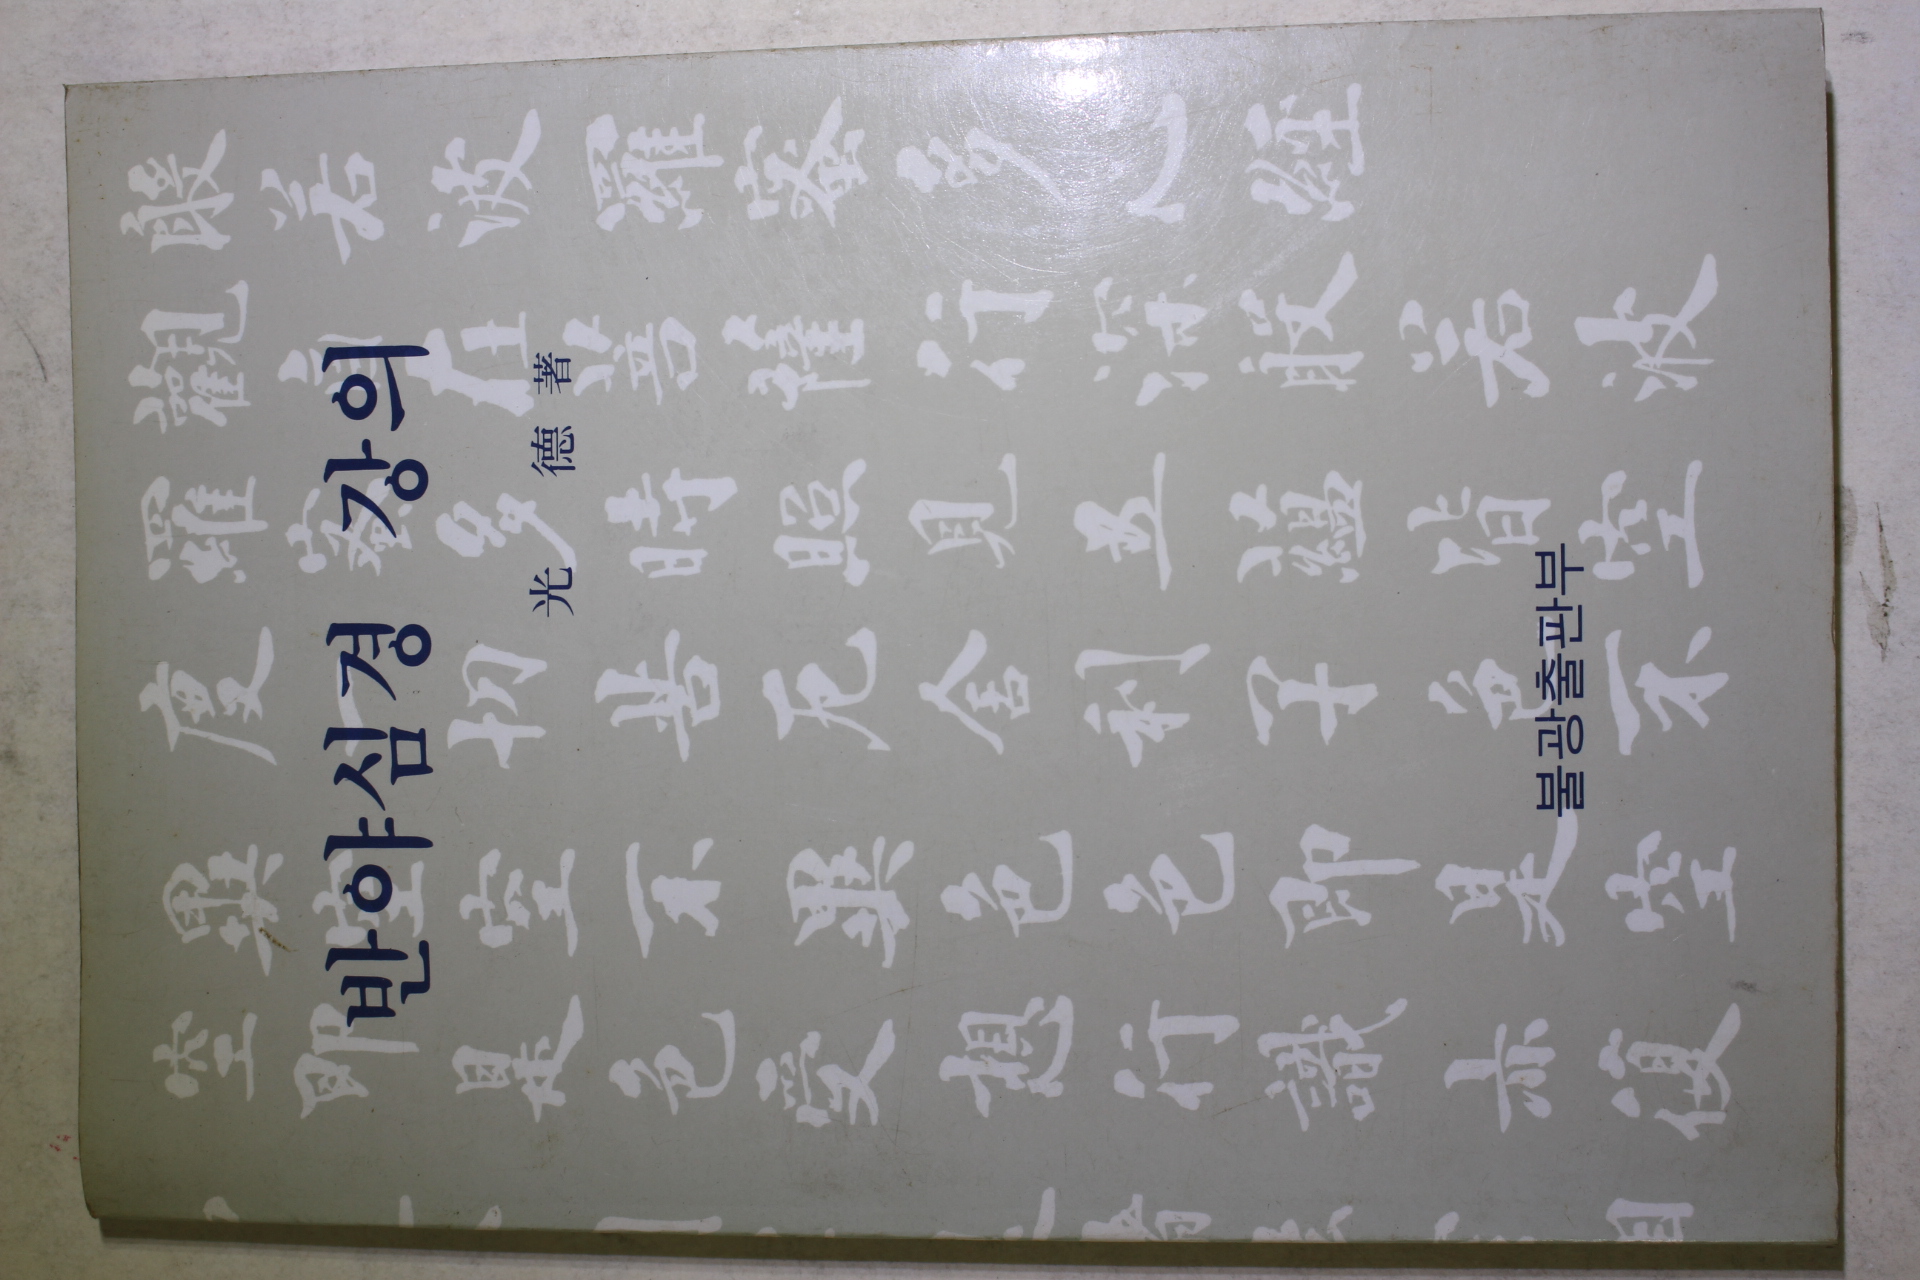 반야심경 강의
光 德 著
불광출판부
般若波羅蜜多心經
觀自在菩薩行深般若波
羅蜜多時照見五蘊皆空
度一切苦厄舍利子色不
異空空不異色色即是空
空即是色受想行識亦復